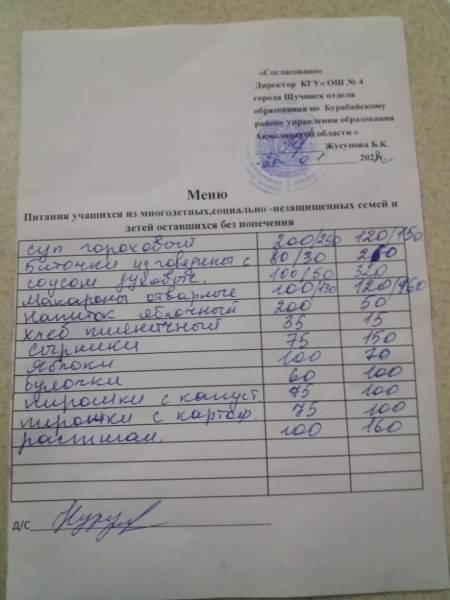 «Согласовано»
Директор КГУ« ОШ № 4
города Щучинск отдела
образования по Бурабайскому
району управления образования
Акмолинской области »
Жусупова Б.К.
01 202
Меню
Питания учащихся из многодетных,социально -незащищенных семей и
детей оставшихся без попечения
Суп гороховый 200/250 120/150
Биточки из говядины с 80/30 260
соусом духовые. 100/50 320
Макароны отварные 100/130 120/160
Напиток яблочный 200 50
Хлеб пшеничный 35 15
Сырники 75 150
Яблоки 100 70
Булочки 60 100
пирошки с капуст 75 100
пирошки с картоф. 75 100
растишан. 100 160
Д/С